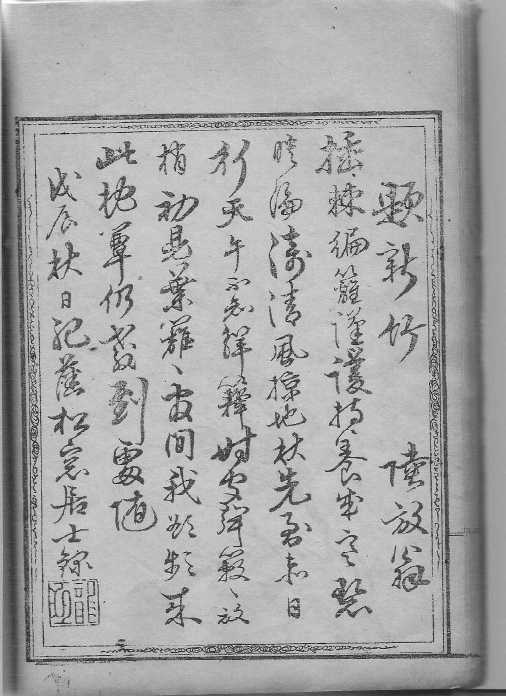 題新竹　陸放翁
插棘編籬謹護持養成寒碧
映淪漪清風掠地秋先至赤日
行天午不知解籜時聞聲簌〻放
梢初見葉離〻官間我欲頻來
此枕簟仍教到處隨
戊辰秋日松窓居士錄